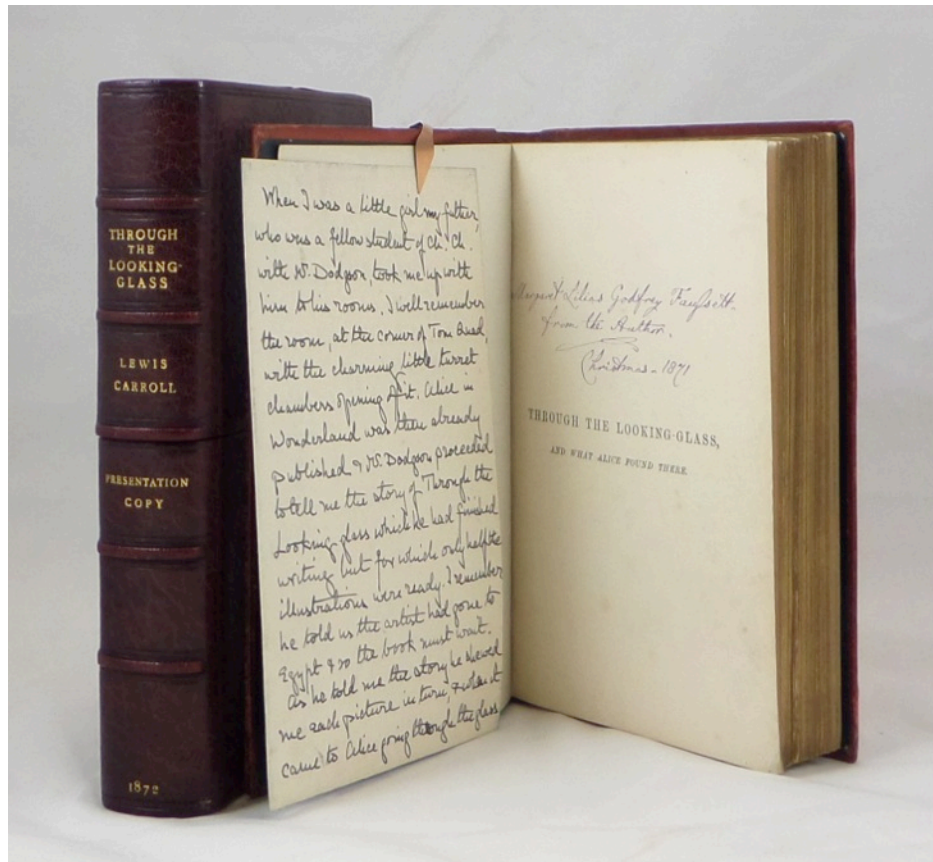 THROUGH
THE
LOOKING-
GLASS
LEWIS
CARROLL
PRESENTATION
COPY
1872
When I was a little girl my father,
who was a fellow student of Ch. Ch.
with Mr. Dodgson, took me up with
him to his rooms, I well remember
the room, at the corner of Tom Quad,
with the charming little turret
chambers opening off it. Alice in
Wonderland was then already
published & Mr. Dodgson proceeded
to tell me the story of Through the
Looking glass which he had finished
writing but for which only half the
illustrations were ready. I remember
he told us the artist had gone to
Egypt & so the book must wait.
As he told me the story he shewed
me each picture in turn, & when it
came to Alice going through the glass
Margaret Lilias Godfrey Faussett.
from the Author.
Christmas - 1871
THROUGH THE LOOKING-GLASS,
AND WHAT ALICE FOUND THERE.